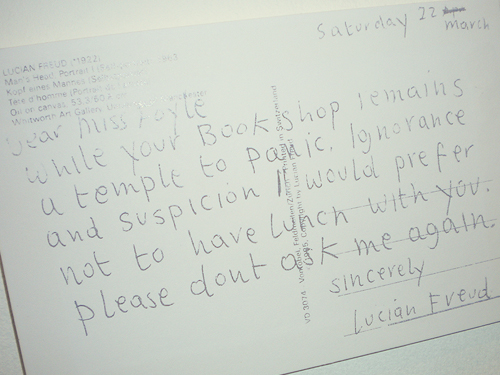 Saturday 22
March
LUCIAN FREUD (*1922)
Man's Head, Portrait I 1963
Kopf eines Mannes
Tête d'homme
Oil on canvas, 53,3
Whitworth Art Gallery,
Dear Miss Foyle
while your Book shop remains
a temple to panic. Ignorance
and suspicion I would prefer
not to have lunch with you.
please dont ask me again.
sincerely
Lucian Freud
VD 3074